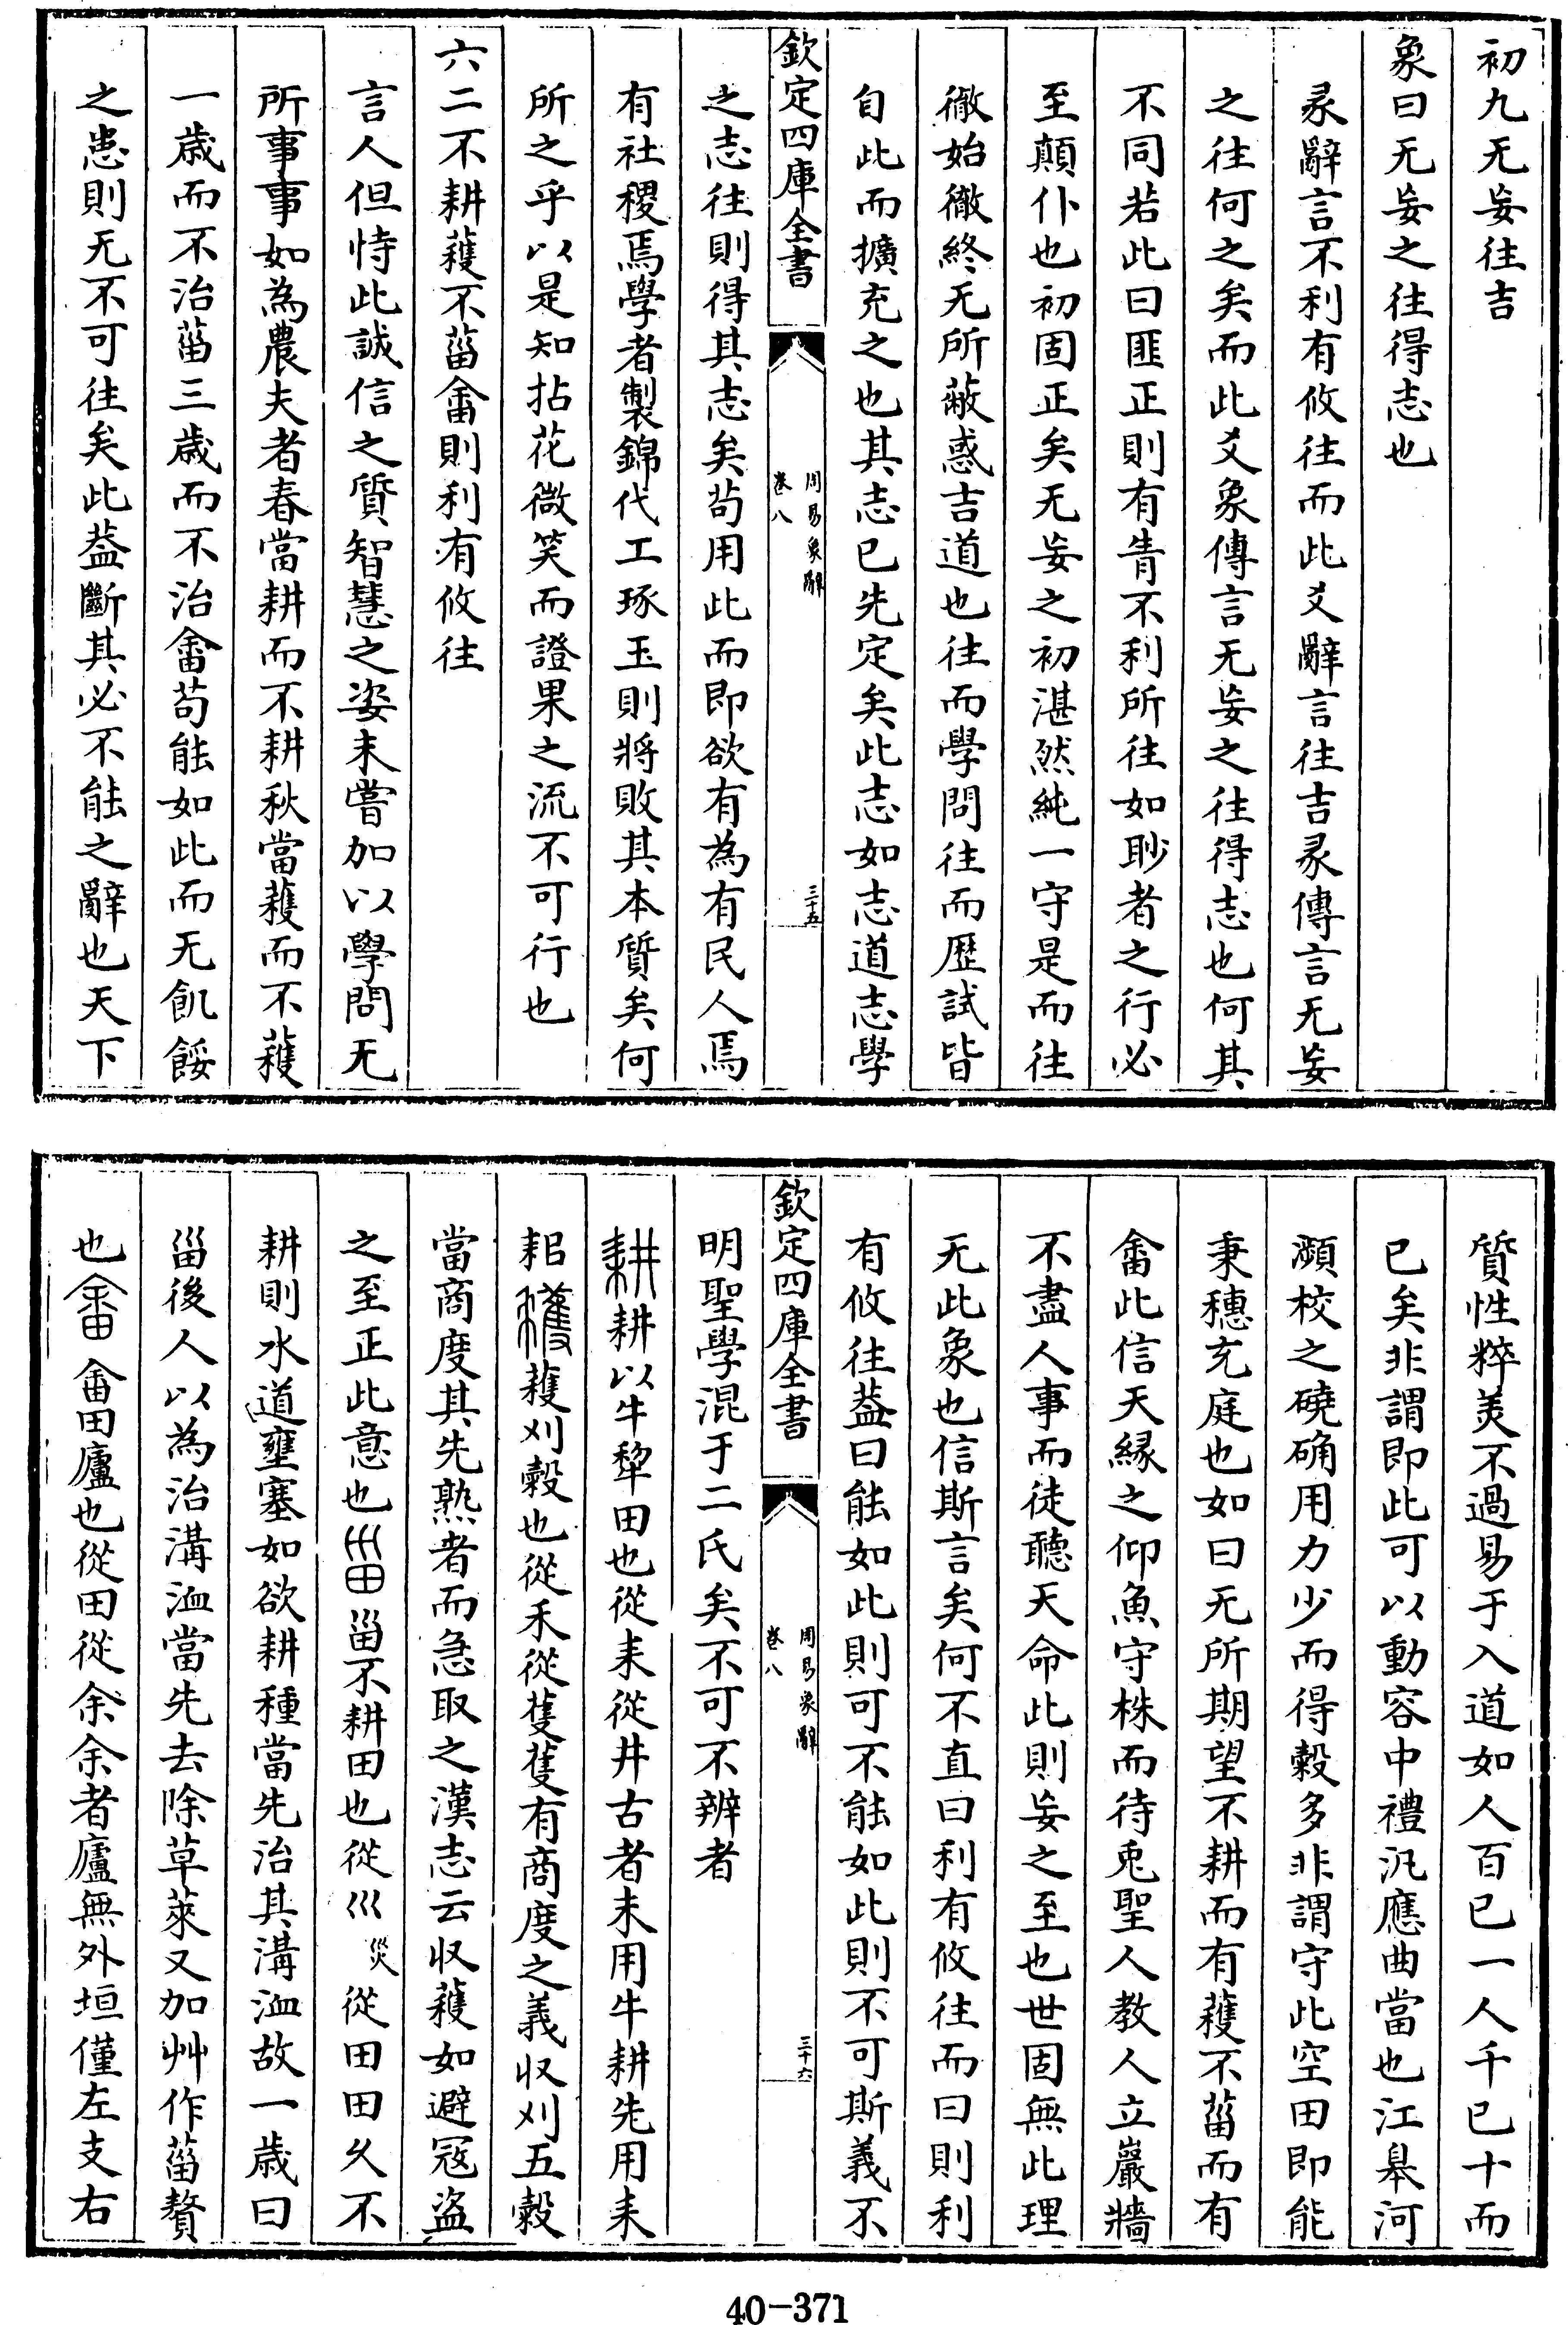 初九无妄往吉
象曰无妄之往得志也
彖辭言不利有攸往而此爻辭言往吉彖傳言无妄
之往何之矣而此爻象傳言无妄之往得志也何其
不同若此曰匪正則有眚不利所往如眇者之行必
至顛仆也初固正矣无妄之初湛然純一守是而往
徹始徹終无所蔽惑吉道也往而學問往而歴試皆
自此而擴充之也其志已先定矣此志如志道志學
欽定四庫全書
周易象辭
卷八
三十五
之志往則得其志矣茍用此而即欲有為有民人焉
有社稷焉學者製錦代工琢玉則將敗其本質矣何
所之乎以是知拈花微笑而證果之流不可行也
六二不耕穫不菑畬則利有攸往
言人但恃此誠信之質智慧之姿未嘗加以學問无
所事事如為農夫者春當耕而不耕秋當穫而不穫
一歳而不治菑三歳而不治畬茍能如此而无飢餒
之患則无不可往矣此葢斷其必不能之辭也天下
質性粹美不過易于入道如人百已一人千已十而
已矣非謂即此可以動容中禮汎應曲當也江臯河
瀕校之磽确用力少而得榖多非謂守此空田即能
秉穗充庭也如曰无所期望不耕而有穫不菑而有
畬此信天縁之仰魚守株而待兎聖人教人立巖牆
不盡人事而徒聽天命此則妄之至也世固無此理
无此象也信斯言矣何不直曰利有攸往而曰則利
有攸往葢曰能如此則可不能如此則不可斯義不
欽定四庫全書
周易象辭
卷八
三十六
明聖學混于二氏矣不可不辨者
耕耕以牛犂田也從耒從井古者未用牛耕先用耒
耜穫穫刈榖也從禾從蒦蒦有商度之義収刈五榖
當商度其先熟者而急取之漢志云収穫如避冦盜
之至正此意也甾甾不耕田也從巛災從田田乆不
耕則水道壅塞如欲耕種當先治其溝洫故一歳曰
甾後人以為治溝洫當先去除草萊又加艸作菑贅
也畬畬田廬也從田從余余者廬無外垣僅左支右
40-371